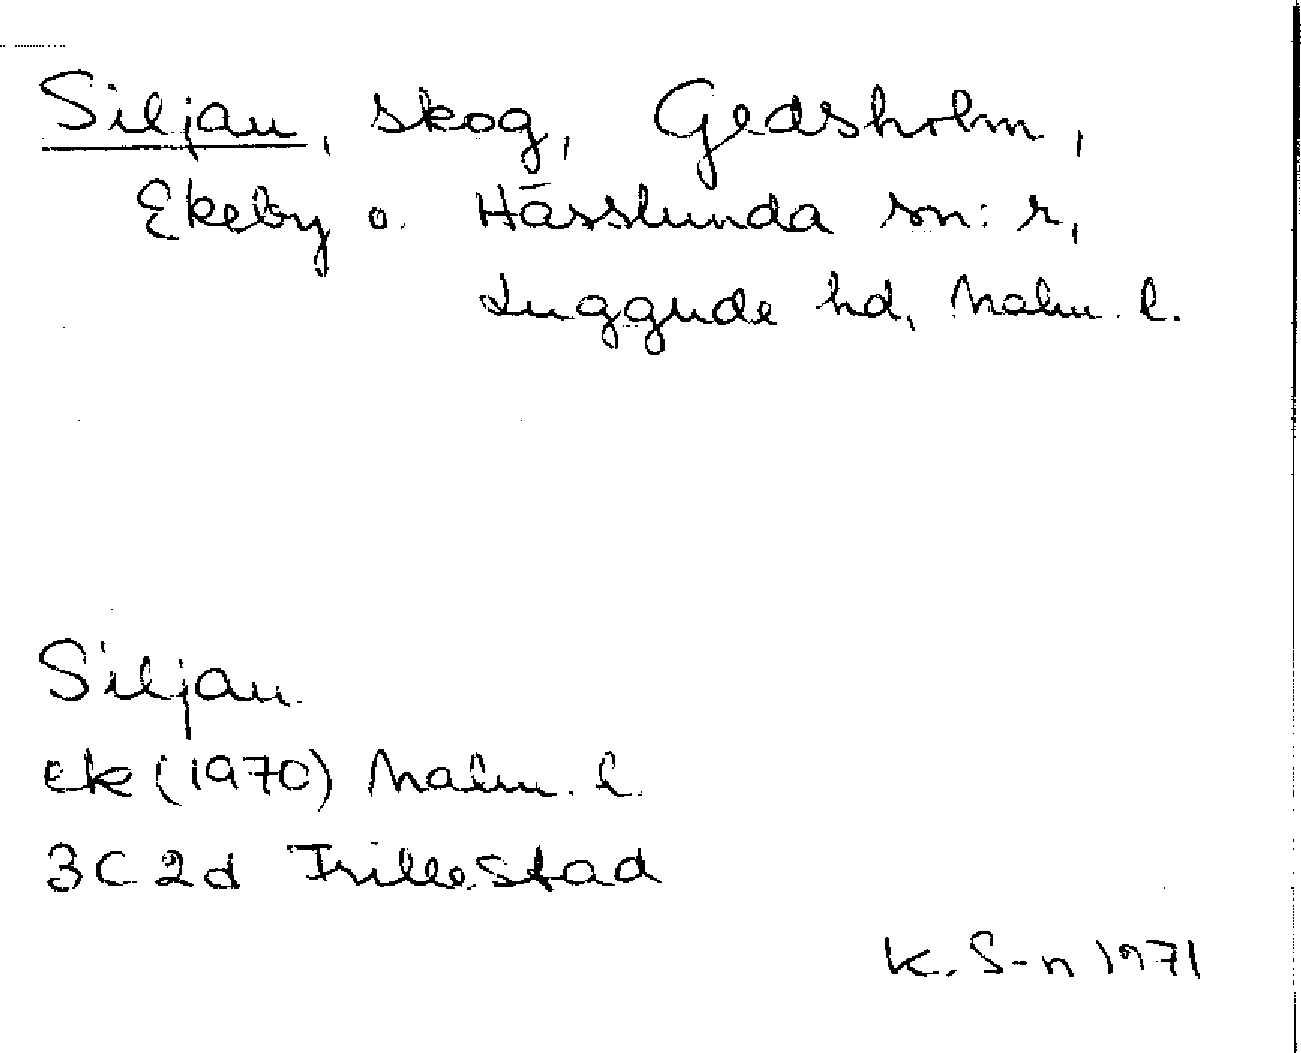 Siljan, skog, Gedsholm,
Ekeby o. Hässlunda sn:r,
Luggude hd, Malm. l.
Siljan
ek (1970) Malm. l.
3C 2d Trillestad
K. S-n 1971